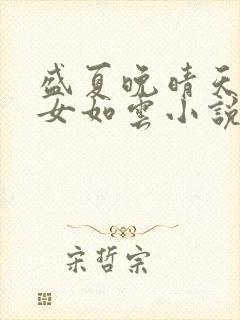 盛夏晚晴天
女如雲小說
宋哲宗